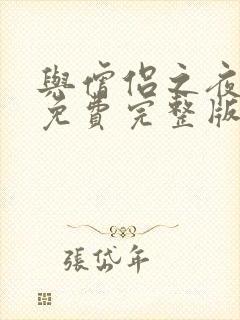 與僧侶之夜
免費完整版
張岱年